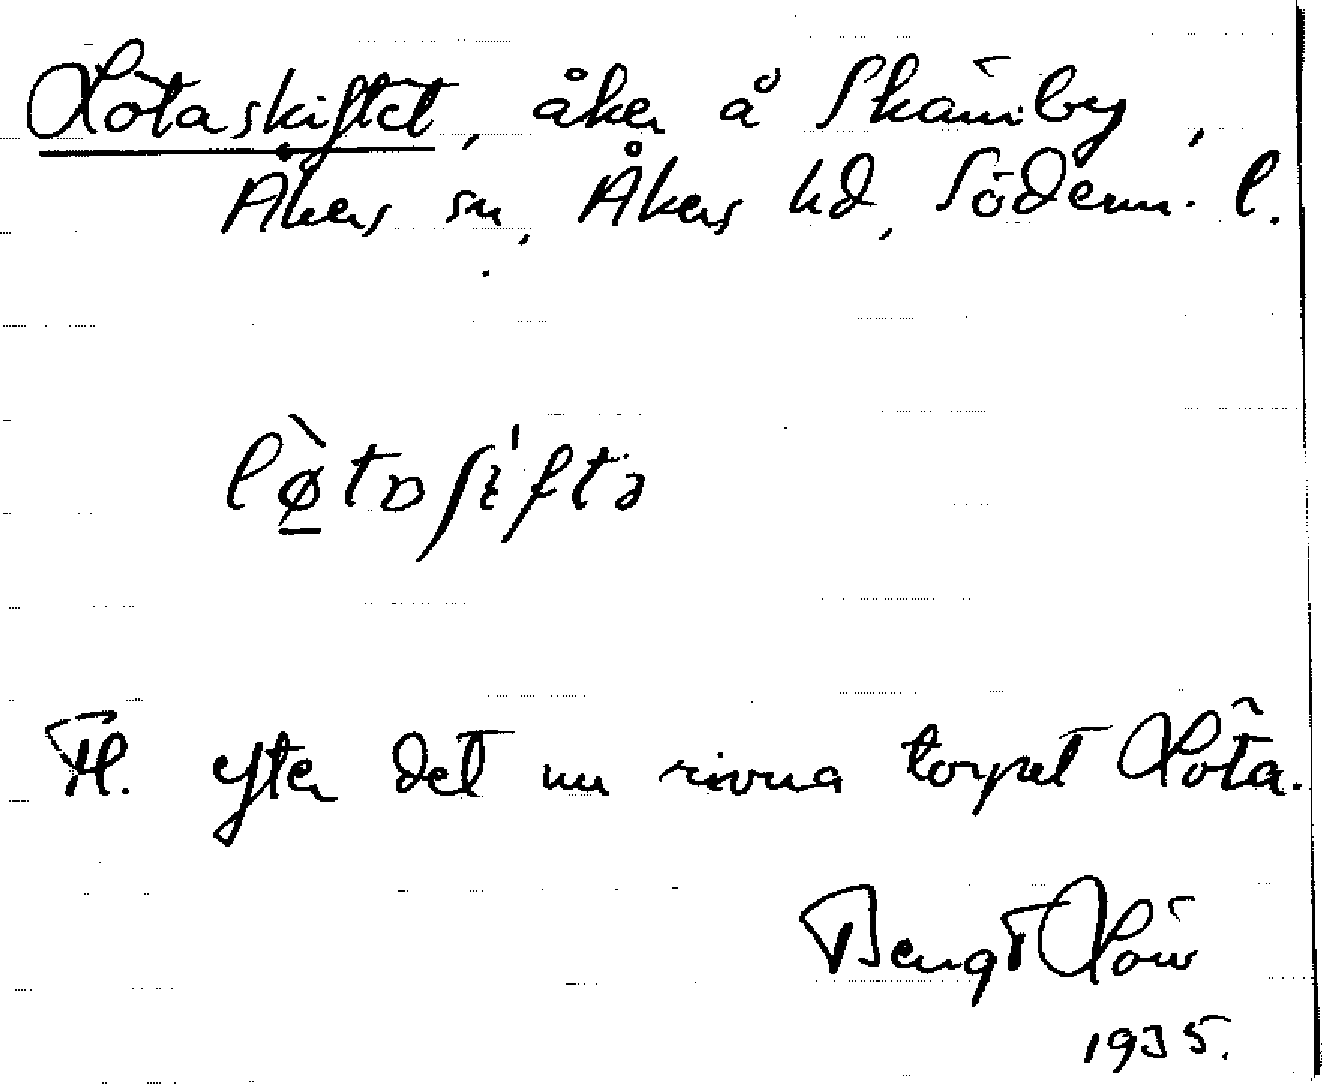 Lötaskiftet, åker å Skämby,
Åkers sn, Åkers hd, Söderm. l.
lø̀tɒʃi'ftə
H. efter det nu rivna torpet Löta.
Bengt
1935.